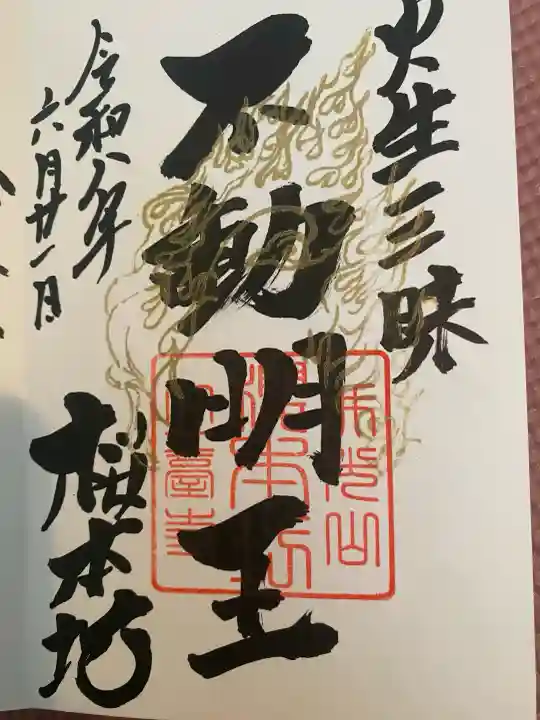 火生三昧
不動明王
令和八年
六月廿一日
櫻本坊